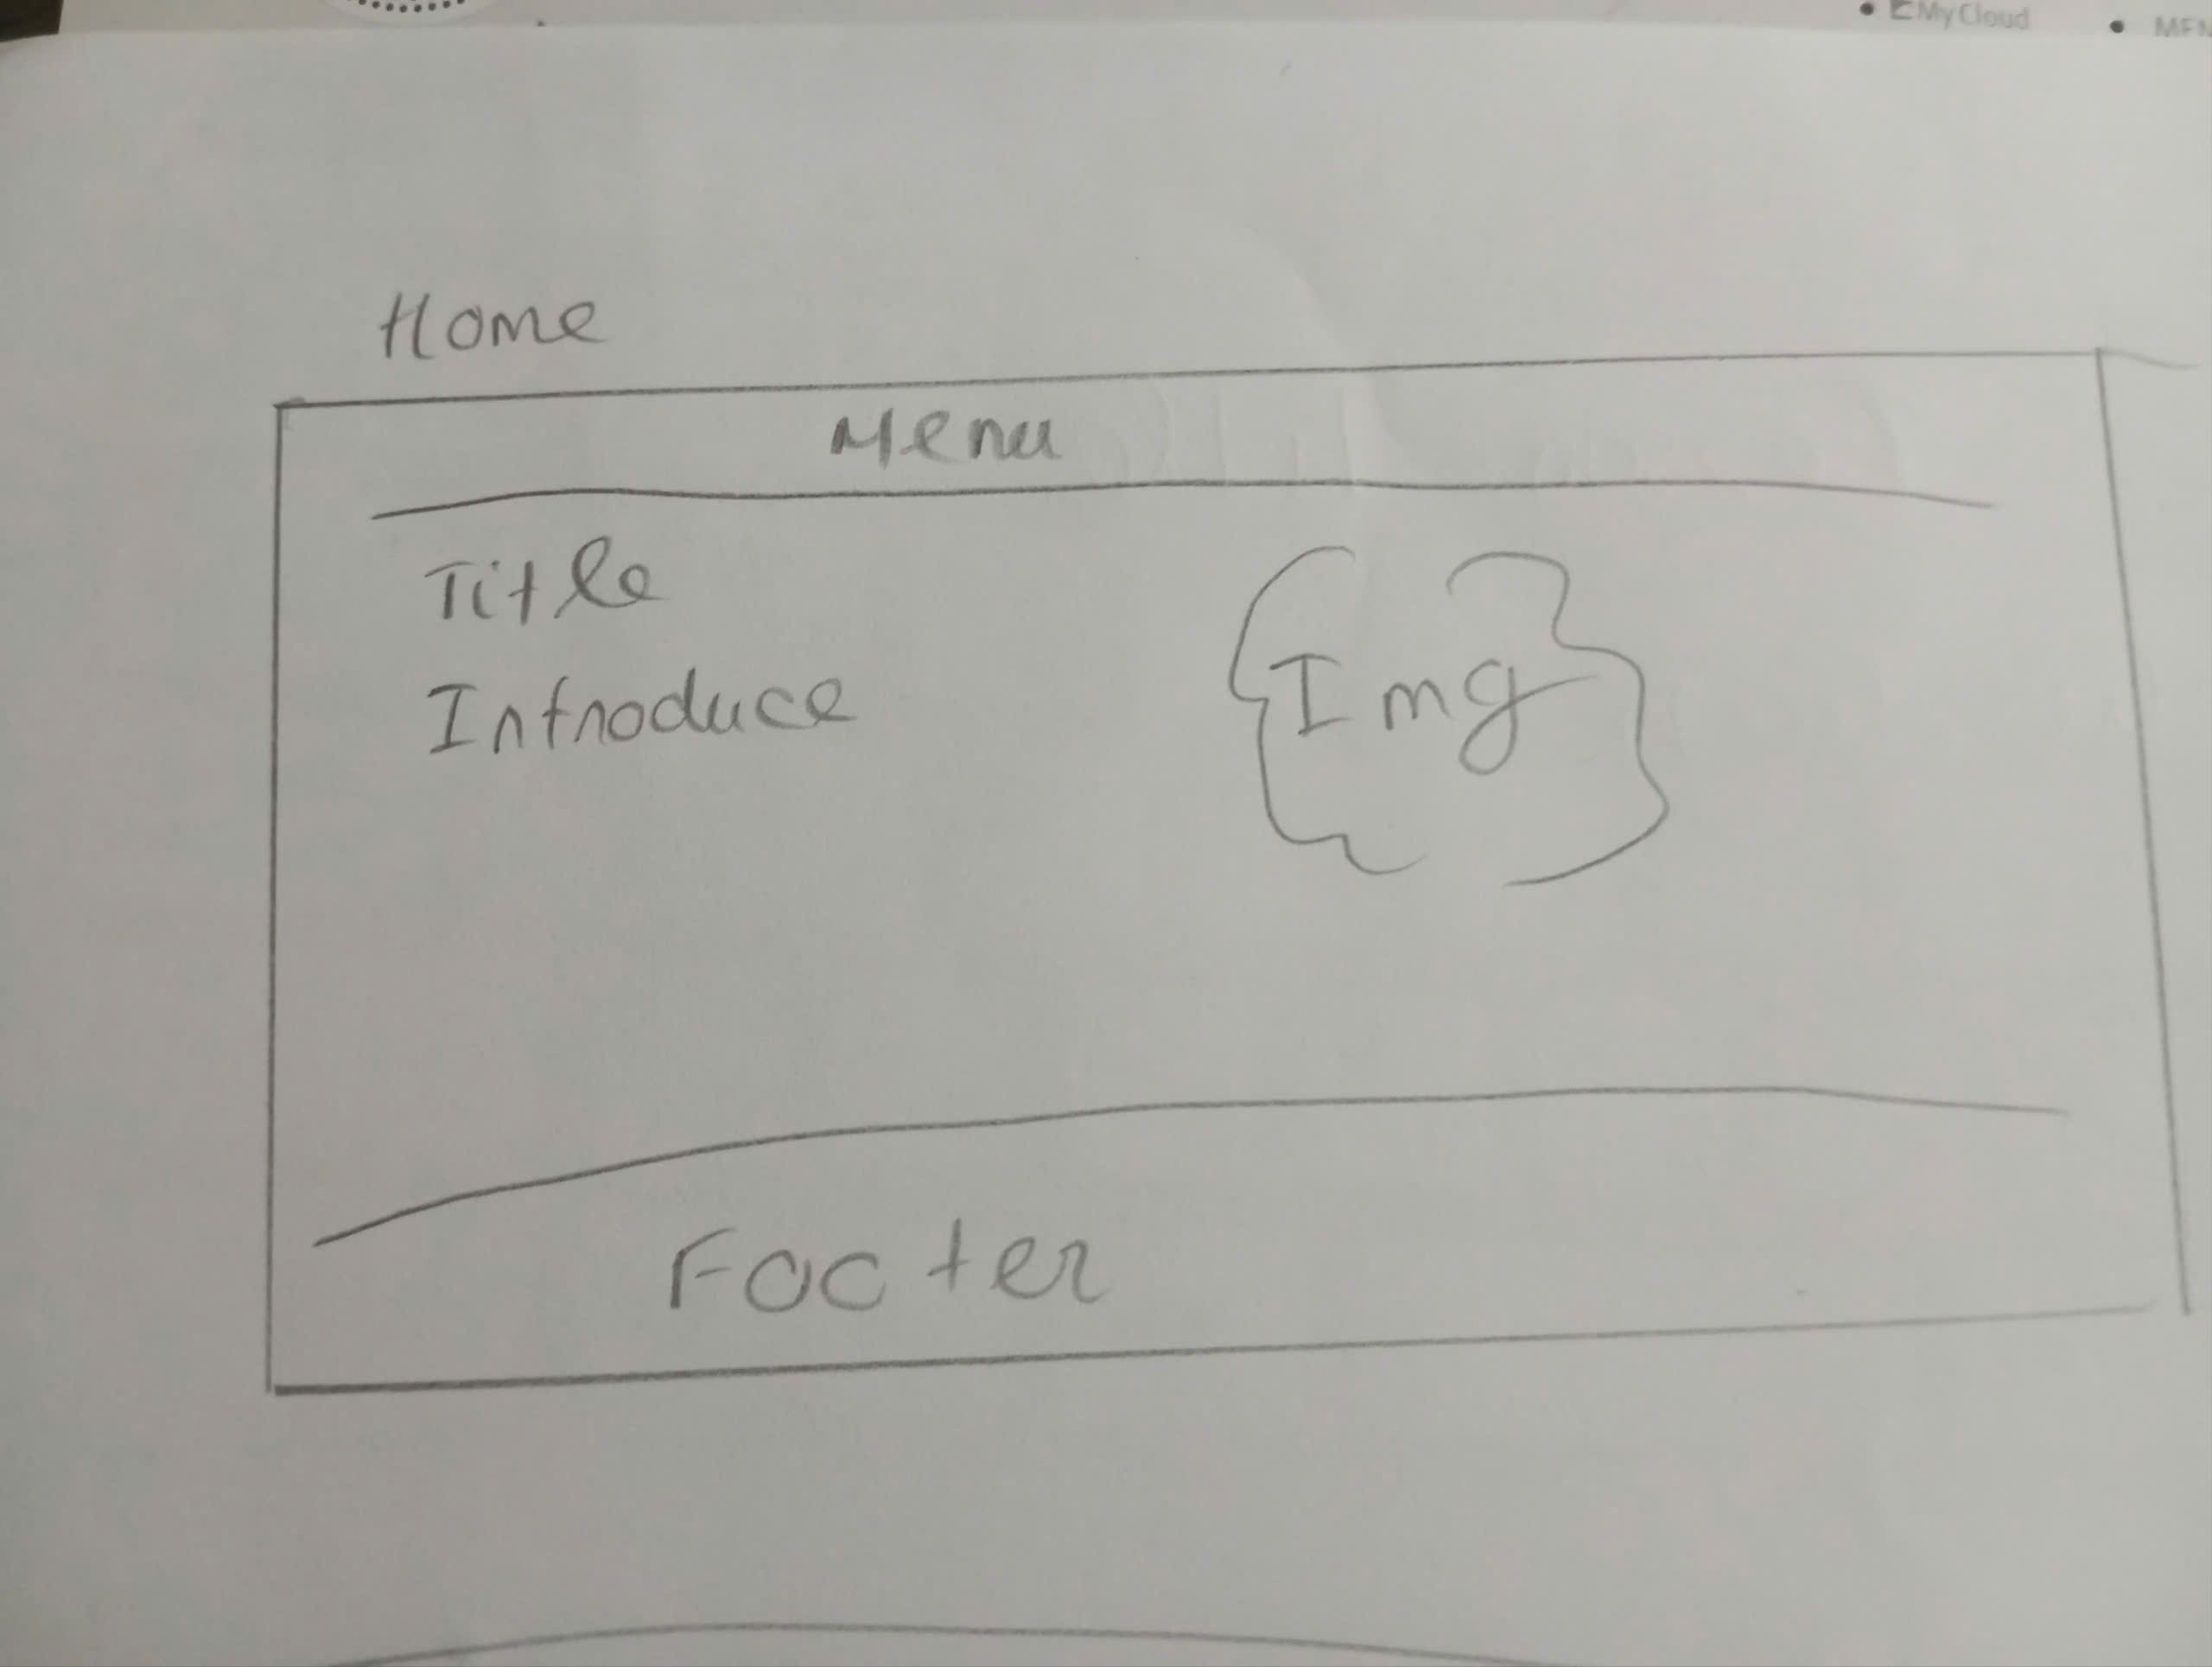 My Cloud
Home
Menu
Title
Introduce
Img
Footer